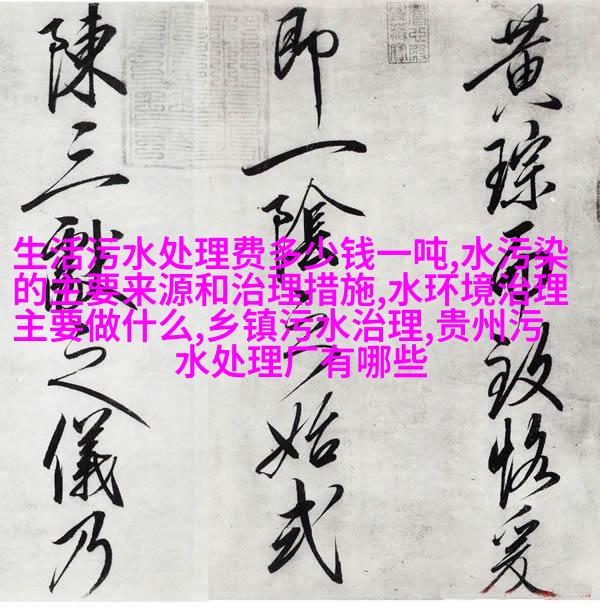 黄琮而致恪爰
即一陰之始式
陳三獻之儀乃
生活污水处理费多少钱一吨,水污染
的主要来源和治理措施,水环境治理
主要做什么,乡镇污水治理,贵州污
水处理厂有哪些